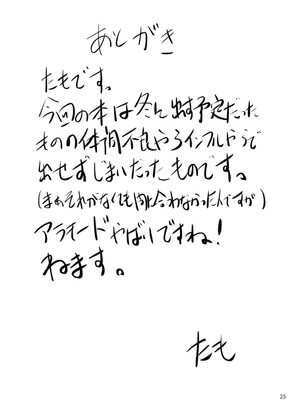 あとがき
たもです。
今回の本は冬に出す予定だった
ものの体調不良やらインフルやらで
出せずじまいだったものです。
(まぁそれがなくても間に合わなかったんですが)
アラモードやばいですね!
ねます。
たも
25